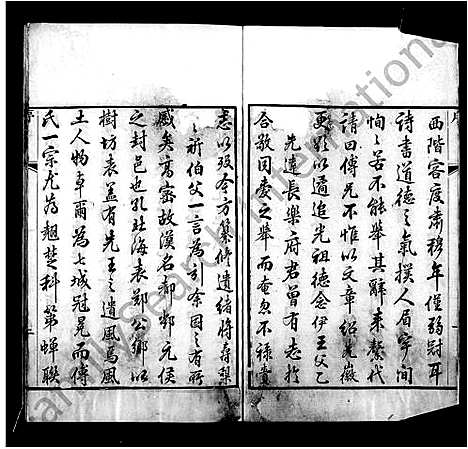 西階容度肅穆年僅弱冠耳
詩書道德之氣撲人眉宇間
恂恂若不能舉其辭未幾代
請曰傅兄不惟以文章紹先徽
更欲以遹追光祖德念伊王父乙
合敬同愛之舉而奄忽不祿貴
先達長樂府君曾有志於
志以歿今方纂修遺緒將尋梨
之祈伯父一言為引余因之有所
感矣高密故漢名郡鄧元侯
之封邑也孔北海表鄭公鄉以
樹坊表蓋有先王之遺風焉風
土人物卓爾為七城冠冕而傅
氏一宗尤為翹楚科第蝉聯
序